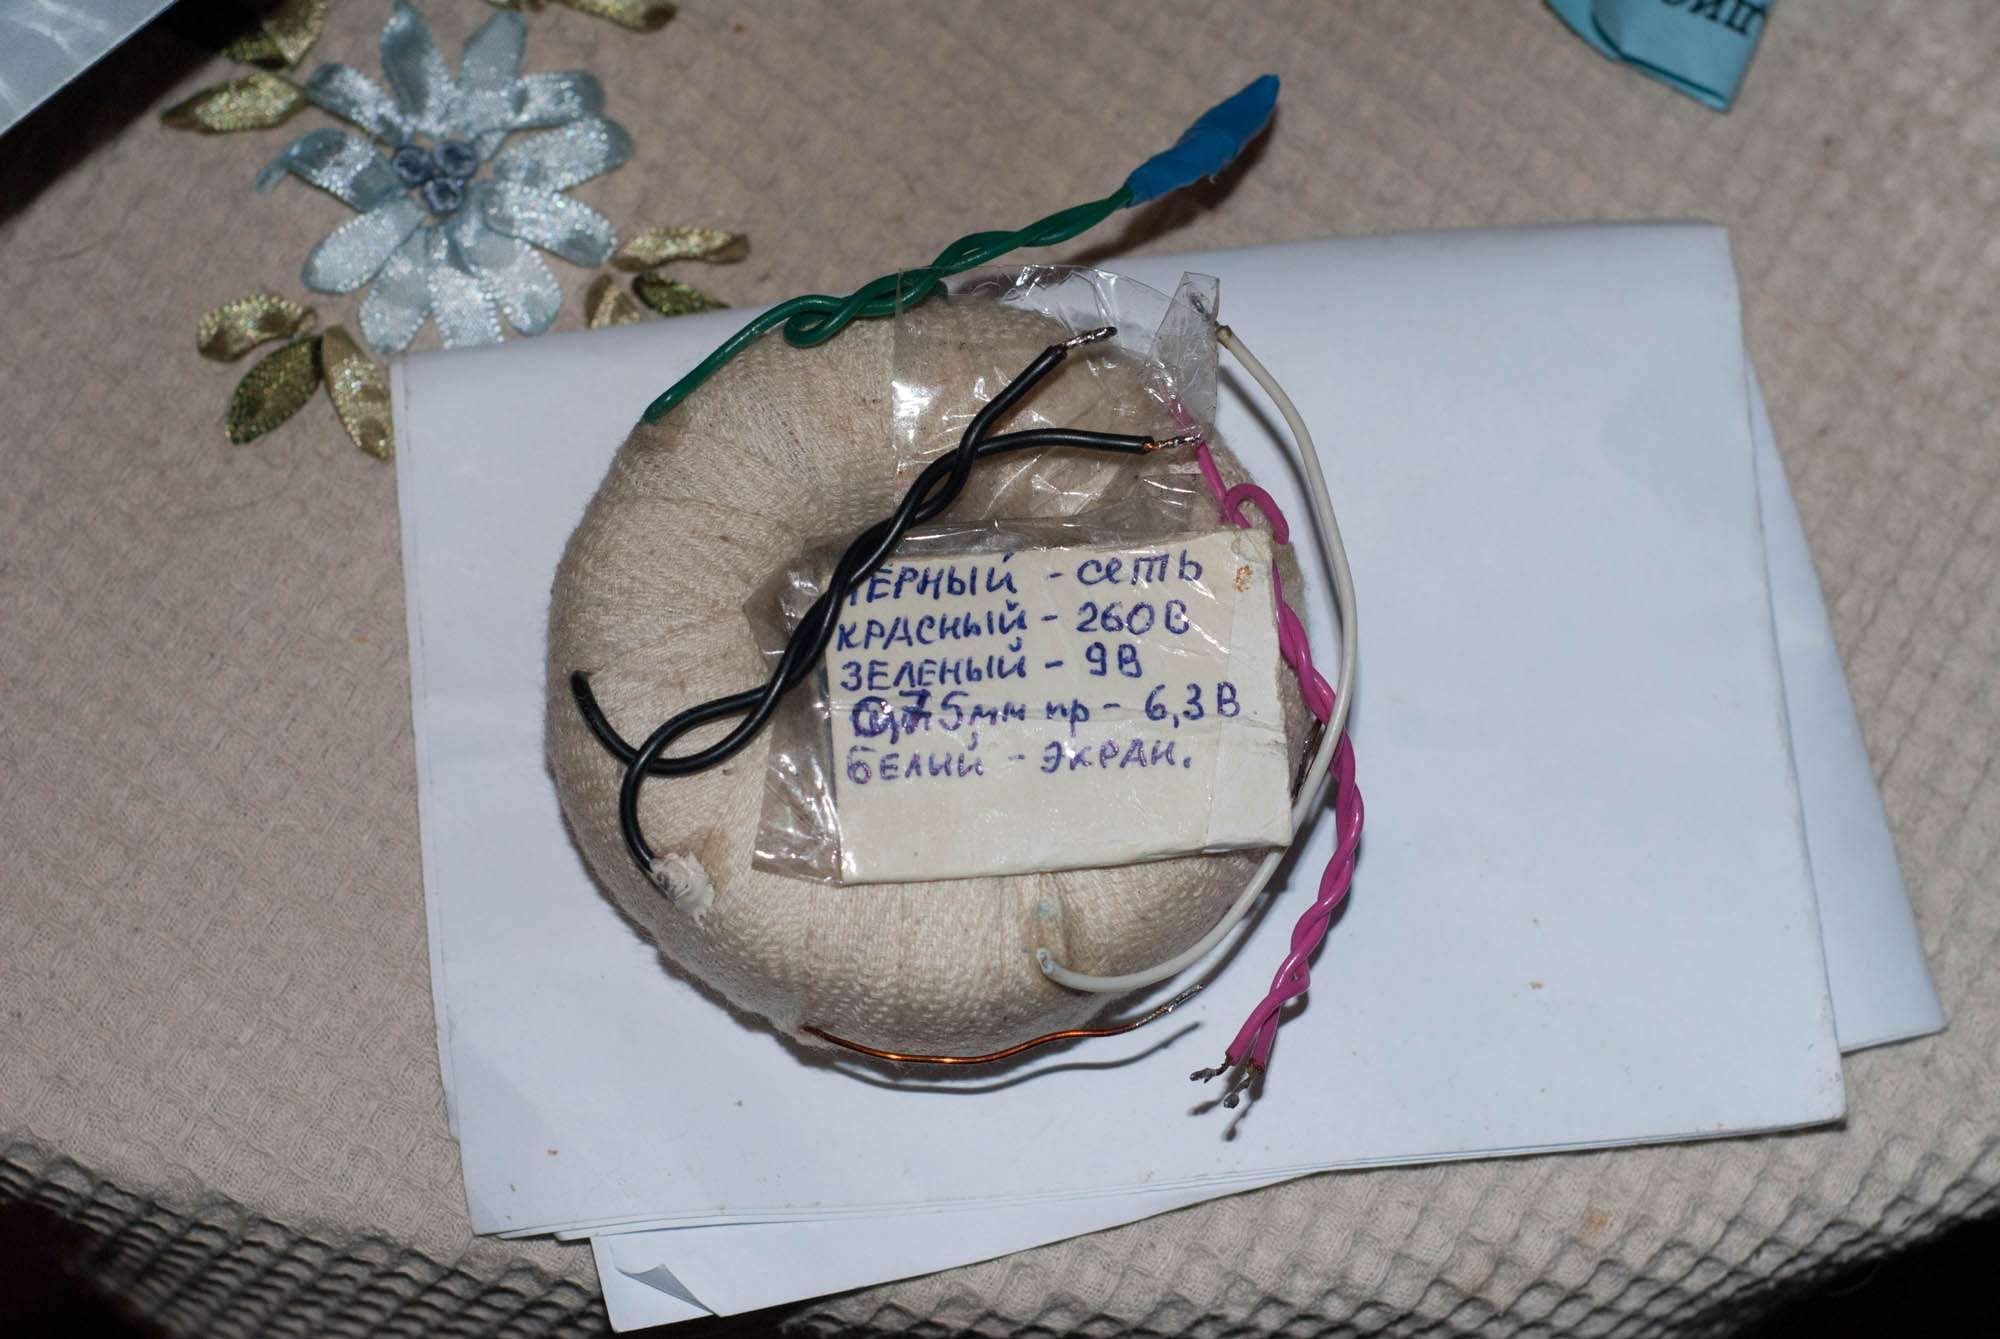 ЧЕРНЫЙ - сеть
КРАСНЫЙ - 260 В
ЗЕЛЕНЫЙ - 9 В
0,75мм пр - 6,3 В
БЕЛЫЙ - ЭКРАН.